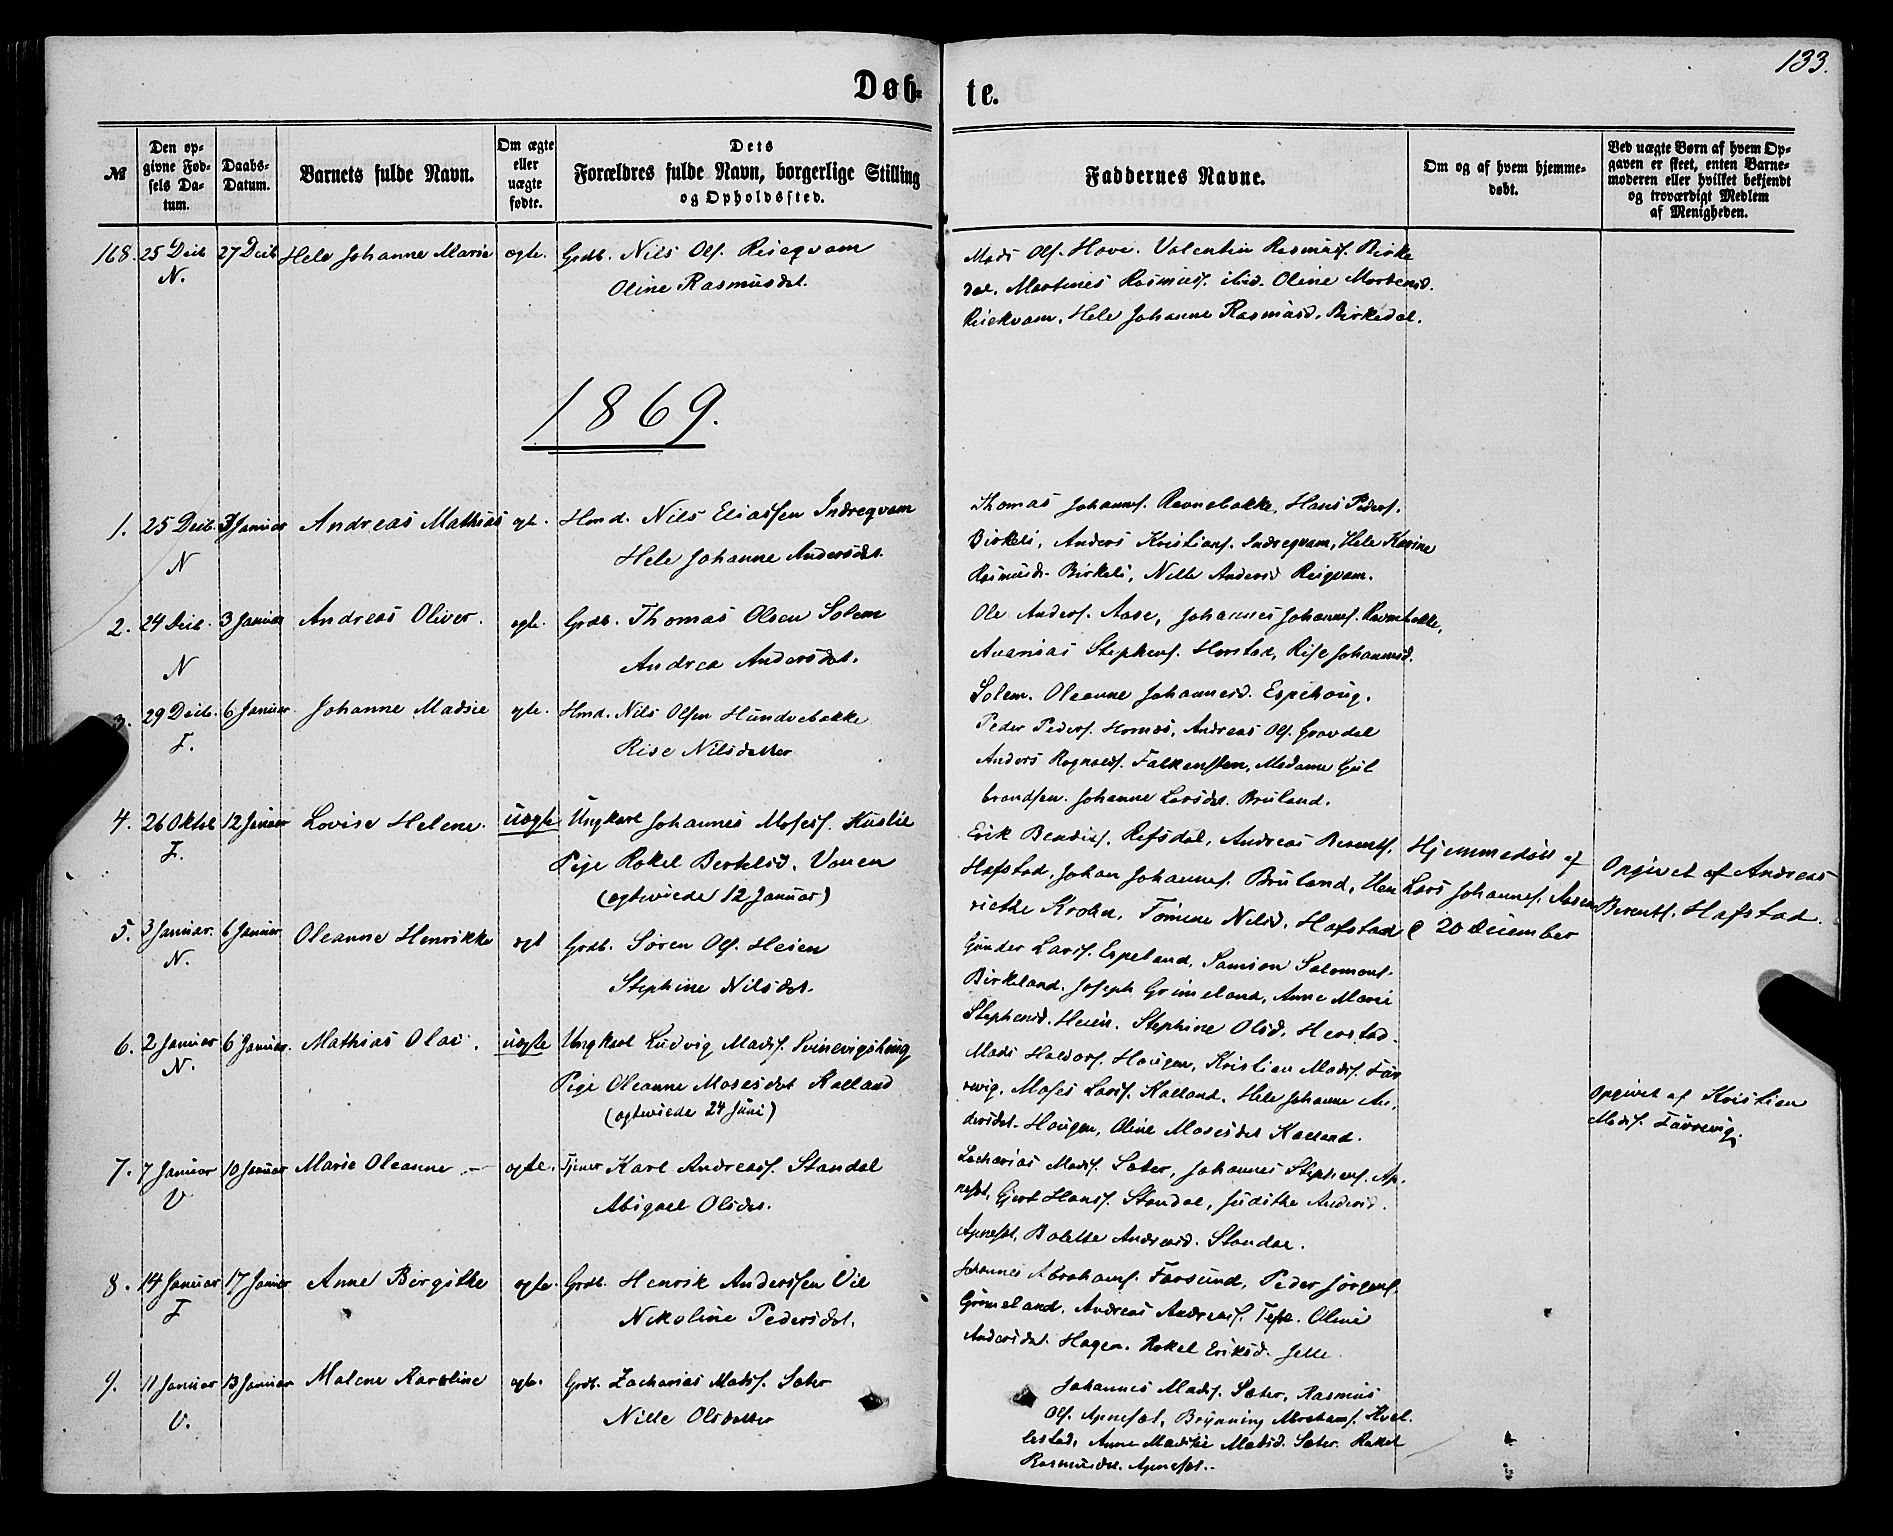 133.
Døb-
te.
№
Den op-
givne Fød-
sels Da-
tum.
Daabs-
Datum.
Barnets fulde Navn.
Om ægte
eller
uægte
fødte.
Dets
Forældres fulde Navn, borgerlige Stilling
og Opholdssted.
Faddernes Navne.
Om og af hvem hjemme-
døbt.
Ved uægte Børn af hvem Op-
gaven er skeet, enten Barne-
moderen eller hvilket bekjendt
og troværdigt Medlem
af Menigheden.
168. 25 Decb 27 Decb Hele Johanne Marie ægte. Grdb. Nils Ols.
N. Oline Rasmusdat.
Mads Ols. Hove. Valentin Rasmuss. Birke
dal, Martines Rasmuss. ibid. Oline Mortensd.
Hele Johanne Rasmusd. Birkedal.
1869.
1. 25 Decb. 3 Januar Andreas Mathias egt. Hmd. Nils Eliassen Indreqvam
N Hele Johanne Andersdt.
Thomas Johannes. Ravnebakke, Hans Peders.
Birkeli, Anders Kristians. Indreqvam, Hele Karine
Rasmusd. Birkeli, Nille Andersd Reiqvam.
2. 24 Decb. 3 Januar Andreas Oliver. egte. Grdb. Thomas Olsen Solem
N Andrea Andersdat.
Ole Anders. Aase, Johannes Johannes. Ravnebakke,
Ananias Stephens. Horstad, Rise Johannesd.
Solem. Oleanne Johannesd. Espehoug.
3. 29 Decb. 6 Januar Johanne Madsie egte. Hmd. Nils Olsen Hundvebakke
F. Rise Nilsdatter
Peder Peders. Hornæs, Andreas Ols. Grovdal
Anders Rognalds. Falkensteen, Madame Gul
brandsen. Johanne Larsdat. Bruland.
4. 26 Oktbr 12 Januar Lovise Helene. uægte Ungkarl Johannes Moses. Kuslie
F. Pige Rakel Bertelsd. Vonen
(egteviede 12 Januar)
Erik Bendits. Refsdal, Andreas Berents.
Hafstad, Johan Johannes. Bruland, Hen
riethe Krohn, Tomine Nilsd. Hafstad
Hjemmedøbt af
Lars Johannes. Aasen
20 December
Opgivet af Andreas
Berents. Hafstad.
5. 3 Januar. 6 Januar Oleanne Henrikke egt Grdb. Søren Ols. Heien
N. Stephine Nilsdat.
Gunder Lars. Espeland, Samson Salomons.
Birkeland, Joseph Grimeland, Anne Marie
Stephensd. Heien. Stephine Olsd. Herstad.
6. 2 Januar 6 Januar. Mathias Olai. uægte Ungkarl Ludvig Mads. Svinevigshoug
N. Pige Oleanne Mosesdat Kalland
(egteviede 24 Juni)
Mads Haldors. Hougen, Kristian Mads. Far
revig. Moses Lars. Kalland. Hele Johanne An-
dersdat. Hougen, Oline Mosesdat Kalland.
Opgivet af Kristian
Mads. Farrevig.
7. 7 Januar 10 Januar Marie Oleanne. — egte. Tjener Karl Andreass. Standal
V Abigael Olsdat.
Zacharias Mads. Sæter, Johannes Stephens. Ap-
neset, Gjert Hans. Standal, Judithe Andersd.
Apneset, Bolette Andreasd. Standal.
8. 14 Januar 17 Januar Anne Birgithe egte. Grdb. Henrik Anderssen Vie
F Nikoline Pedersdat.
Johannes Abrahams. Farsund, Peder Jørgens.
Grimeland, Andreas Andreas. Tefre. Oline
Andersdat. Hagen. Rakel Eriksd. Jelle
9. 11 Januar 13 Januar Malene Karoline egte. Grdb. Zacharias Mads. Sæter
V. Nille Olsdatter
Johannes Mads. Sæter, Rasmus
Ols. Apneset, Brynning Abrahams. Kval-
lestad, Anne Madsd. Sæter. Rakel
Rasmusdat. Apneset.